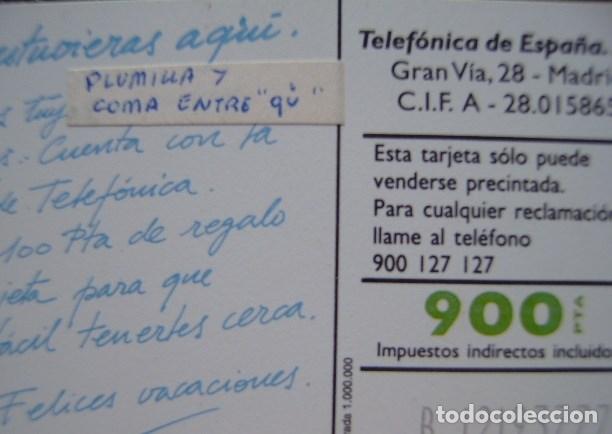 estuvieras aquí.
PLUMILLA Y
COMA ENTRE "qù"
Cuenta con la
de Telefónica.
100 Pta de regalo
para que
fácil tenertes cerca.
Felices vacaciones.
Telefónica de España.
Gran Vía, 28 - Madri
C.I.F. A - 28.01586
Esta tarjeta sólo puede
venderse precintada.
Para cualquier reclamación
llame al teléfono
900 127 127
900 PTA
Impuestos indirectos incluido
rada 1.000.000
todocoleccion